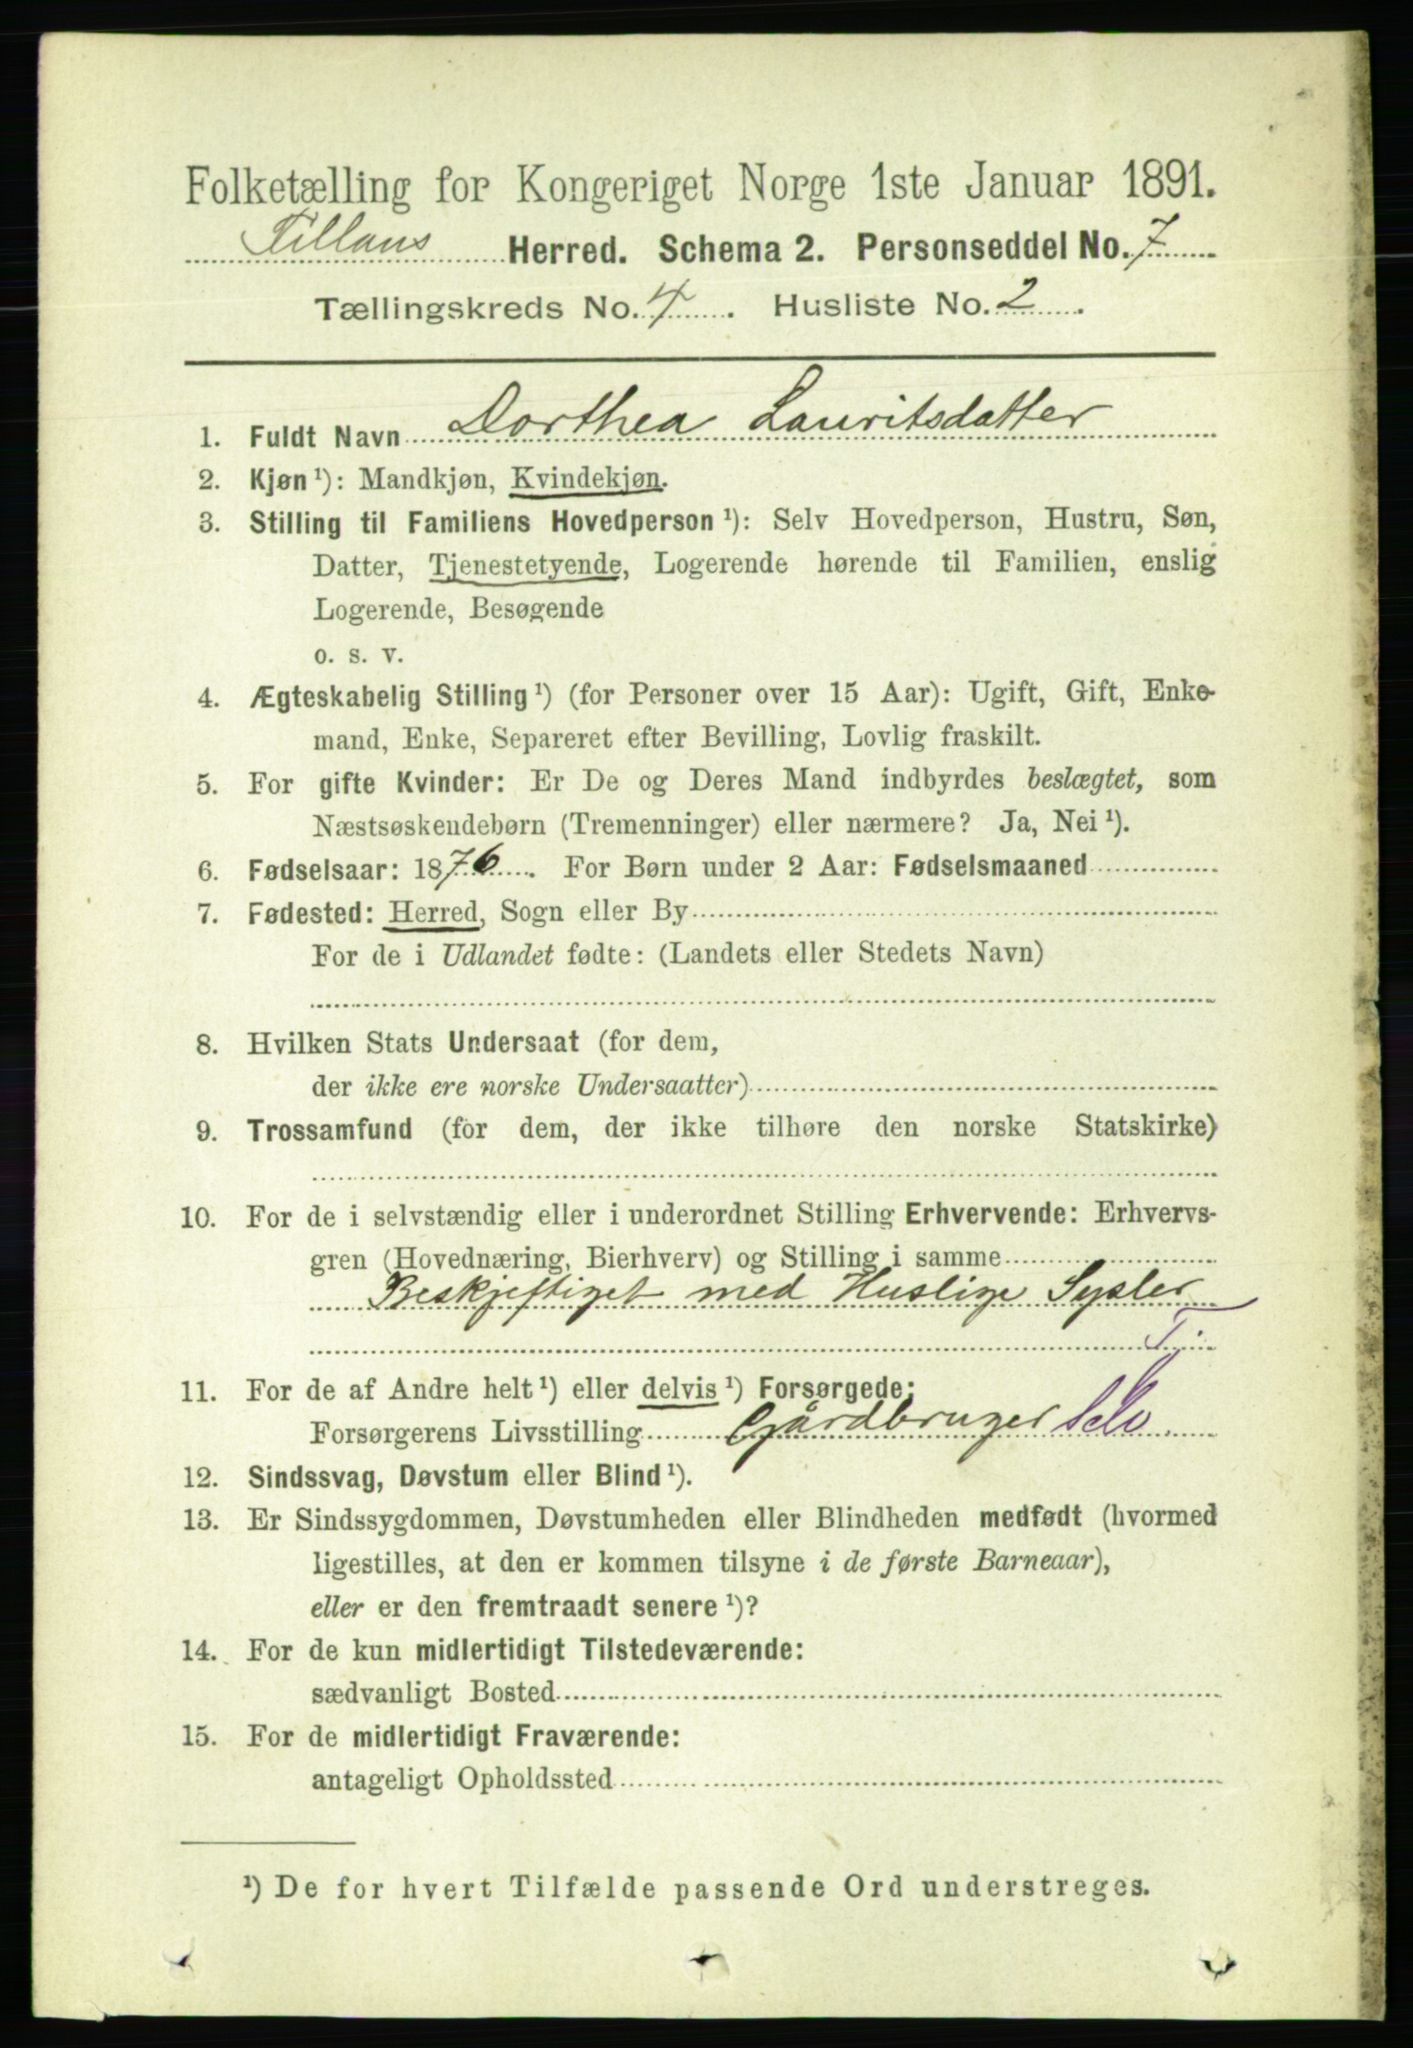 Folketælling for Kongeriget Norge 1ste Januar 1891.
Fillans Herred. Schema 2. Personseddel No. 7
Tællingskreds No. 4. Husliste No. 2.
1. Fuldt Navn Dorthea Lauritsdatter
2. Kjøn ¹): Mandkjøn, Kvindekjøn.
3. Stilling til Familiens Hovedperson ¹): Selv Hovedperson, Hustru, Søn,
Datter, Tjenestetyende, Logerende hørende til Familien, enslig
Logerende, Besøgende
o. s. v.
4. Ægteskabelig Stilling ¹) (for Personer over 15 Aar): Ugift, Gift, Enke-
mand, Enke, Separeret efter Bevilling, Lovlig fraskilt.
5. For gifte Kvinder: Er De og Deres Mand indbyrdes beslægtet, som
Næstsøskendebørn (Tremenninger) eller nærmere? Ja, Nei ¹).
6. Fødselsaar: 1876. For Børn under 2 Aar: Fødselsmaaned
7. Fødested: Herred, Sogn eller By
For de i Udlandet fødte: (Landets eller Stedets Navn)
8. Hvilken Stats Undersaat (for dem,
der ikke ere norske Undersaatter)
9. Trossamfund (for dem, der ikke tilhøre den norske Statskirke)
10. For de i selvstændig eller i underordnet Stilling Erhvervende: Erhvervs-
gren (Hovednæring, Bierhverv) og Stilling i samme
Beskjeftiget med Huslige Sysler
Tj
11. For de af Andre helt ¹) eller delvis ¹) Forsørgede:
Forsørgerens Livsstilling Gjårdbruger Selv.
12. Sindssvag, Døvstum eller Blind ¹).
13. Er Sindssygdommen, Døvstumheden eller Blindheden medfødt (hvormed
ligestilles, at den er kommen tilsyne i de første Barneaar),
eller er den fremtraadt senere ¹)?
14. For de kun midlertidigt Tilstedeværende:
sædvanligt Bosted
15. For de midlertidigt Fraværende:
antageligt Opholdssted
¹) De for hvert Tilfælde passende Ord understreges.